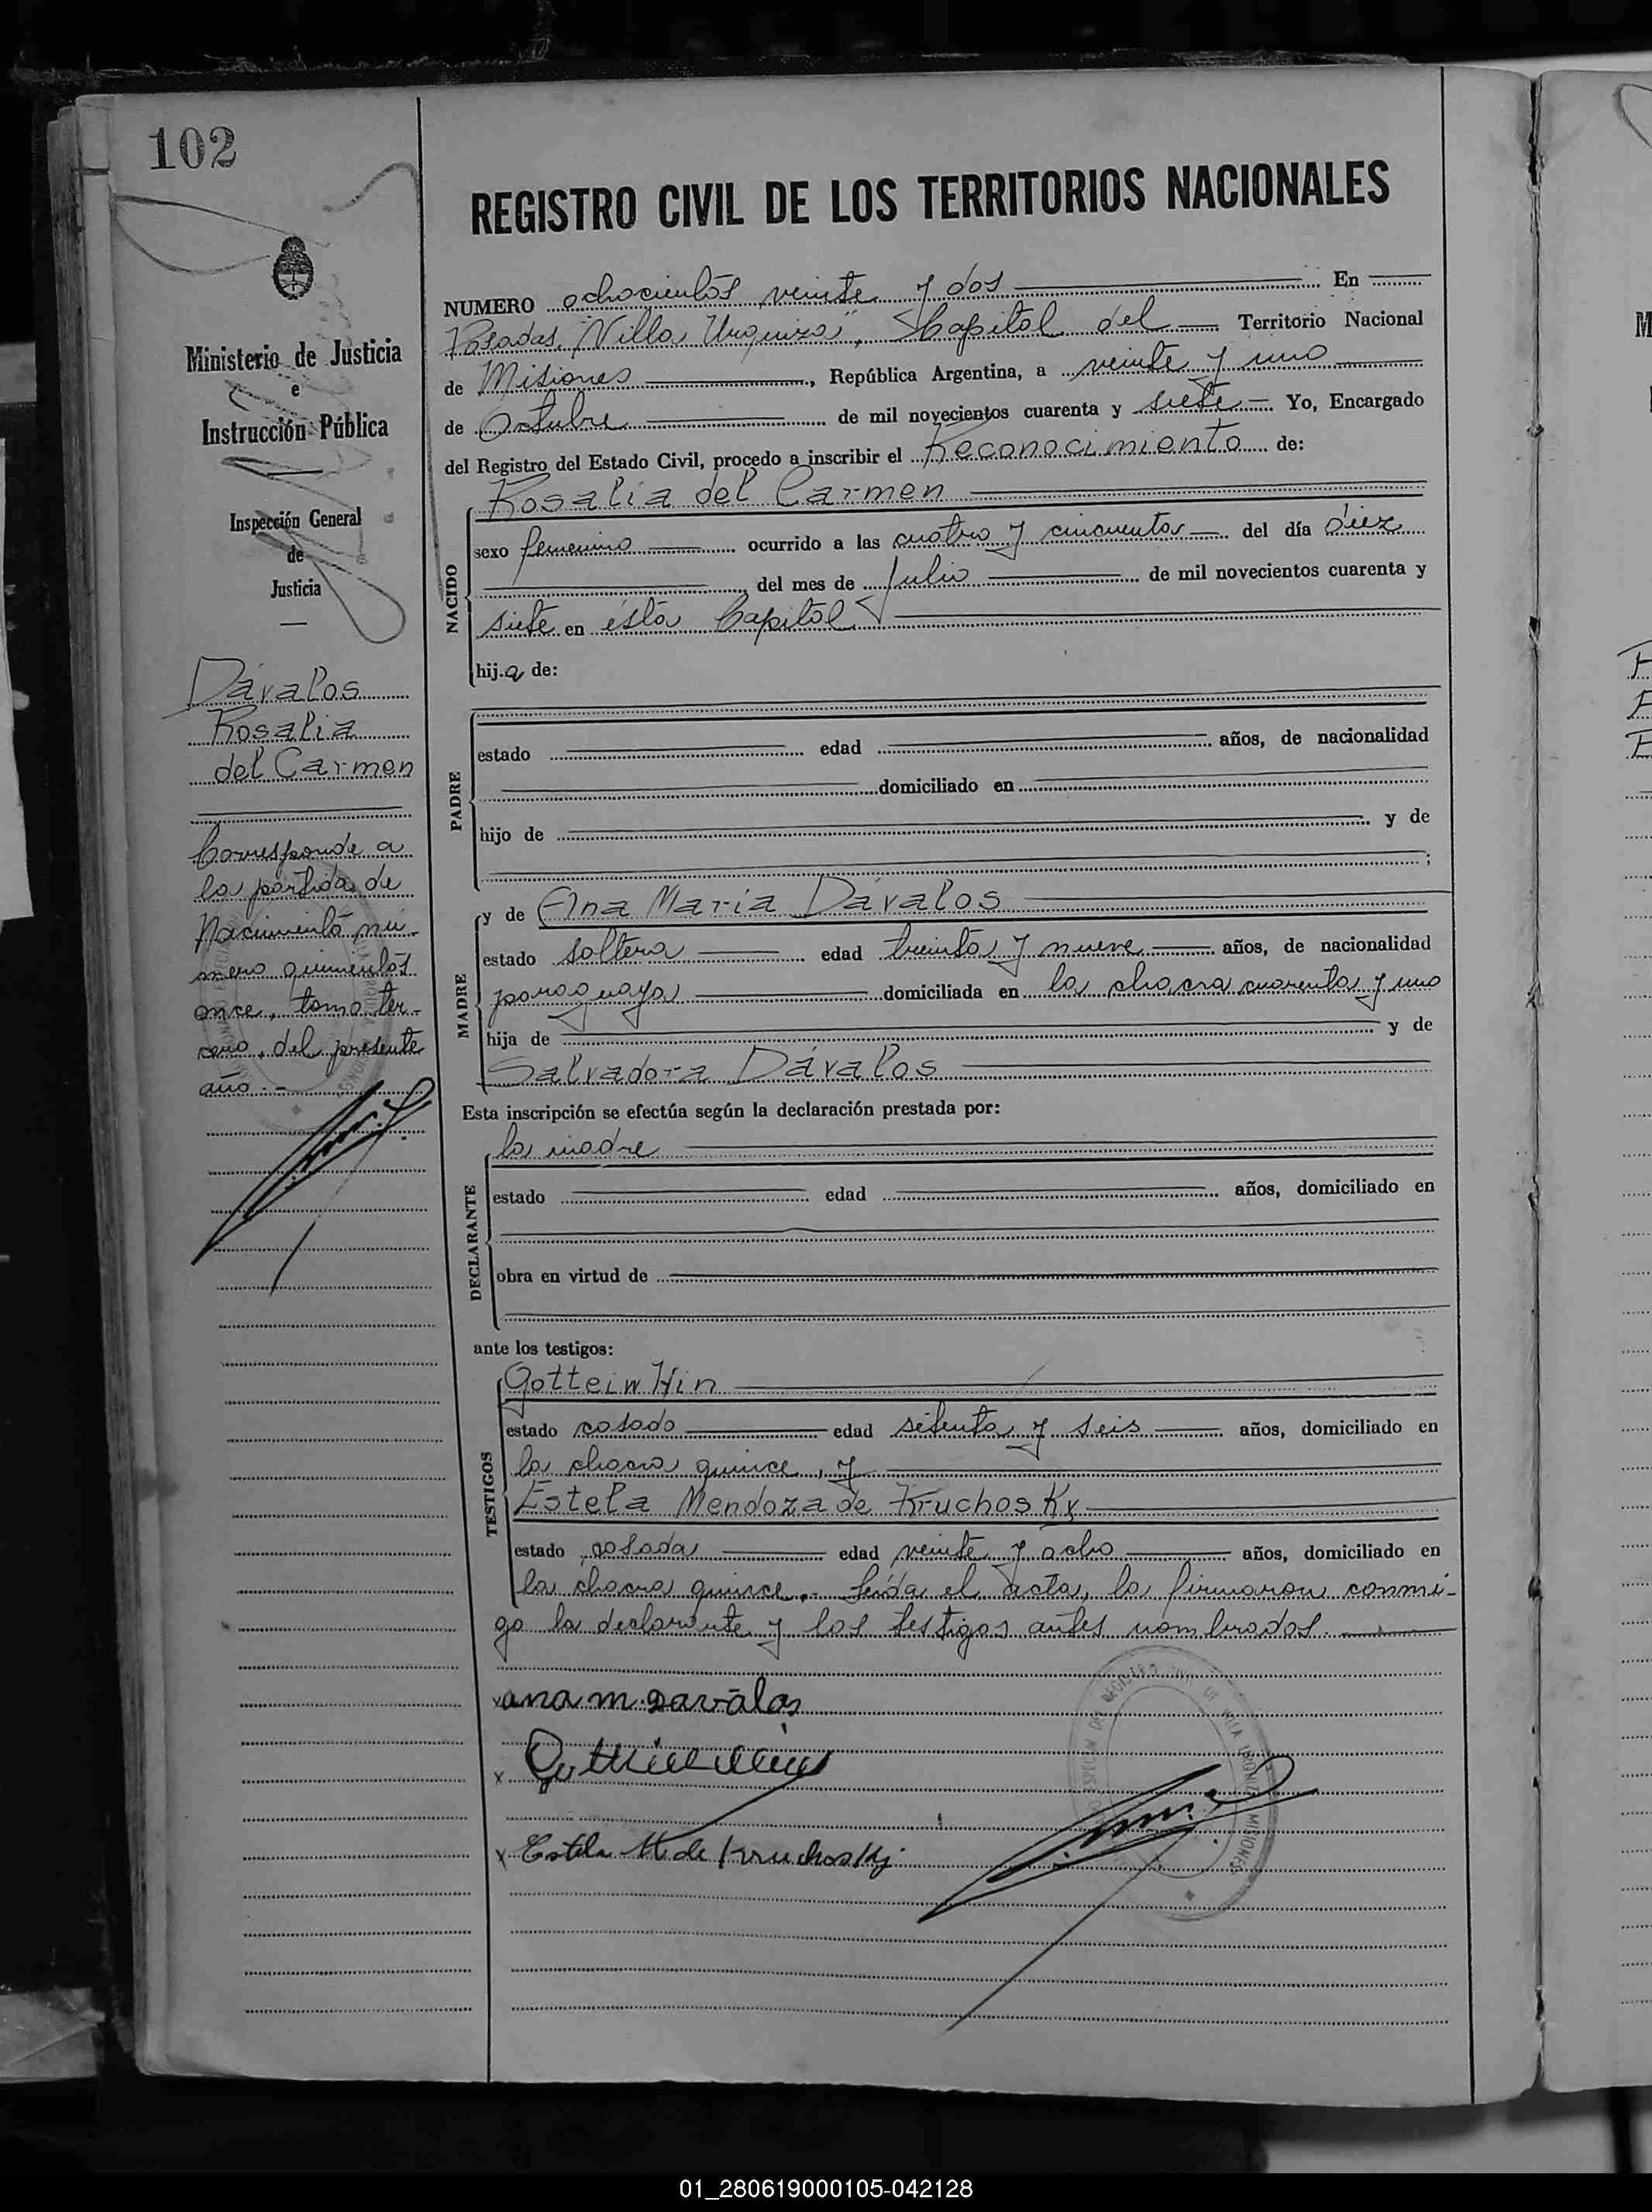 102
REGISTRO CIVIL DE LOS TERRITORIOS NACIONALES
Ministerio de Justicia
e
Instrucción Pública
Inspección General
de
Justicia
Dávalos
Rosalia
del Carmen
Corresponde a
la partida de
Nacimiento nú-
mero quinientos
once, tomo ter-
cero, del presente
año.-
NUMERO ochocientos veinte y dos En
Posadas, "Villa Urquiza", Capital del Territorio Nacional
de Misiones, República Argentina, a veinte y uno
de Octubre de mil novecientos cuarenta y siete Yo, Encargado
del Registro del Estado Civil, procedo a inscribir el Reconocimiento de:
NACIDO
Rosalia del Carmen
sexo femenino ocurrido a las cuatro y cincuenta del día diez
del mes de Julio de mil novecientos cuarenta y
siete en ésta Capital
hij.a de:
PADRE
estado edad años, de nacionalidad
domiciliado en
hijo de y de
;
MADRE
y de Ana Maria Dávalos
estado soltera edad treinta y nueve años, de nacionalidad
paraguaya domiciliada en la chacra cuarenta y uno
hija de y de
Salvadora Dávalos
Esta inscripción se efectúa según la declaración prestada por:
DECLARANTE
la madre
estado edad años, domiciliado en
obra en virtud de
ante los testigos:
TESTIGOS
Gottein Hin
estado casado edad setenta y seis años, domiciliado en
la chacra quince, y
Estela Mendoza de Kruchosky
estado casada edad veinte y ocho años, domiciliado en
la chacra quince.- Leída el acta, la firmaron conmi-
go la declarante y los testigos antes nombrados.
x ana m. Davalos
x
x Estela M de Kruchosky
MISIONES
01_280619000105-042128